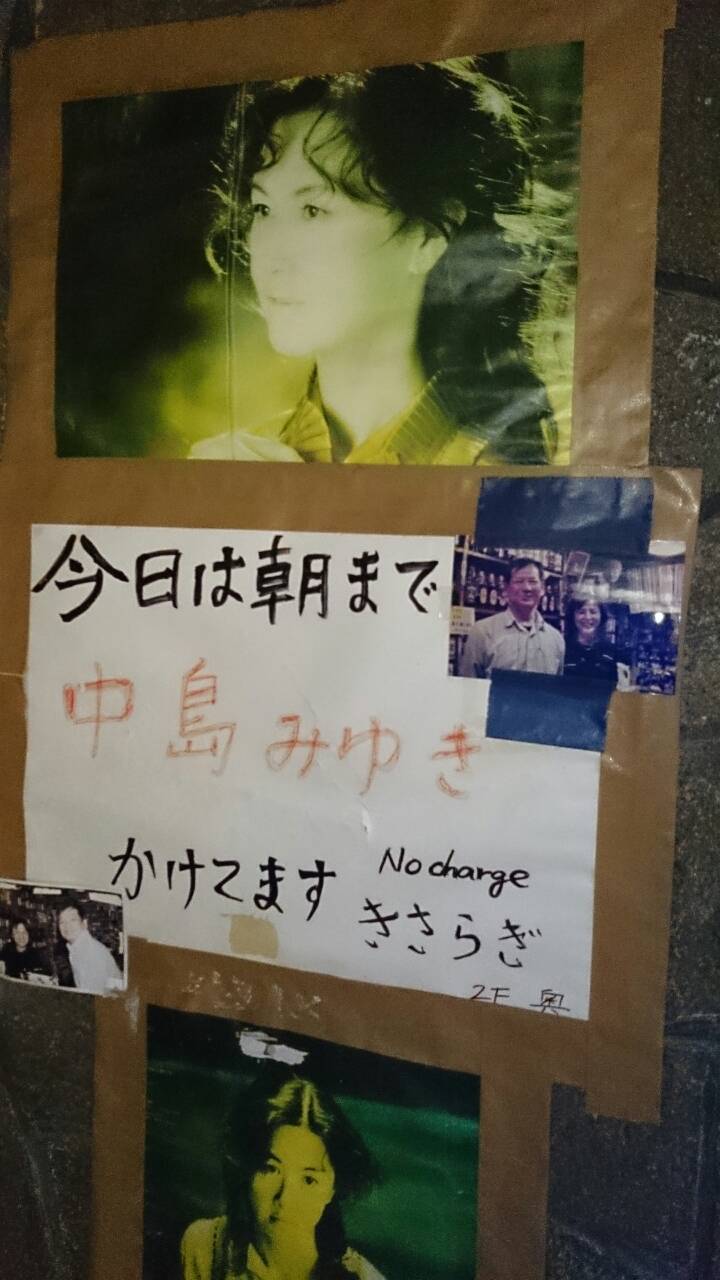 今日は朝まで
中島みゆき
かけてます
No charge
きさらぎ
2F 奥